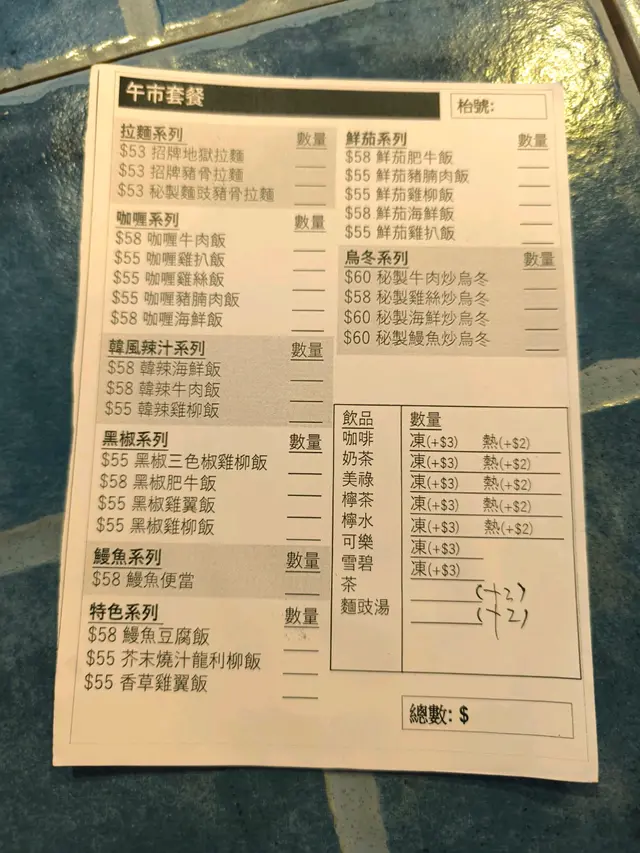 午市套餐
枱號:
拉麵系列 數量
$53 招牌地獄拉麵
$53 招牌豬骨拉麵
$53 秘製麵豉豬骨拉麵
咖喱系列 數量
$58 咖喱牛肉飯
$55 咖喱雞扒飯
$55 咖喱雞絲飯
$55 咖喱豬腩肉飯
$58 咖喱海鮮飯
韓風辣汁系列 數量
$58 韓辣海鮮飯
$58 韓辣牛肉飯
$55 韓辣雞柳飯
黑椒系列 數量
$55 黑椒三色椒雞柳飯
$58 黑椒肥牛飯
$55 黑椒雞翼飯
$55 黑椒雞柳飯
鰻魚系列 數量
$58 鰻魚便當
特色系列 數量
$58 鰻魚豆腐飯
$55 芥末燒汁龍利柳飯
$55 香草雞翼飯
鮮茄系列 數量
$58 鮮茄肥牛飯
$55 鮮茄豬腩肉飯
$55 鮮茄雞柳飯
$58 鮮茄海鮮飯
$55 鮮茄雞扒飯
烏冬系列 數量
$60 秘製牛肉炒烏冬
$58 秘製雞絲炒烏冬
$60 秘製海鮮炒烏冬
$60 秘製鰻魚炒烏冬
飲品 數量
咖啡 凍(+$3) 熱(+$2)
奶茶 凍(+$3) 熱(+$2)
美祿 凍(+$3) 熱(+$2)
檸茶 凍(+$3) 熱(+$2)
檸水 凍(+$3) 熱(+$2)
可樂 凍(+$3)
雪碧 凍(+$3)
茶 (+2)
麵豉湯 (+2)
總數: $